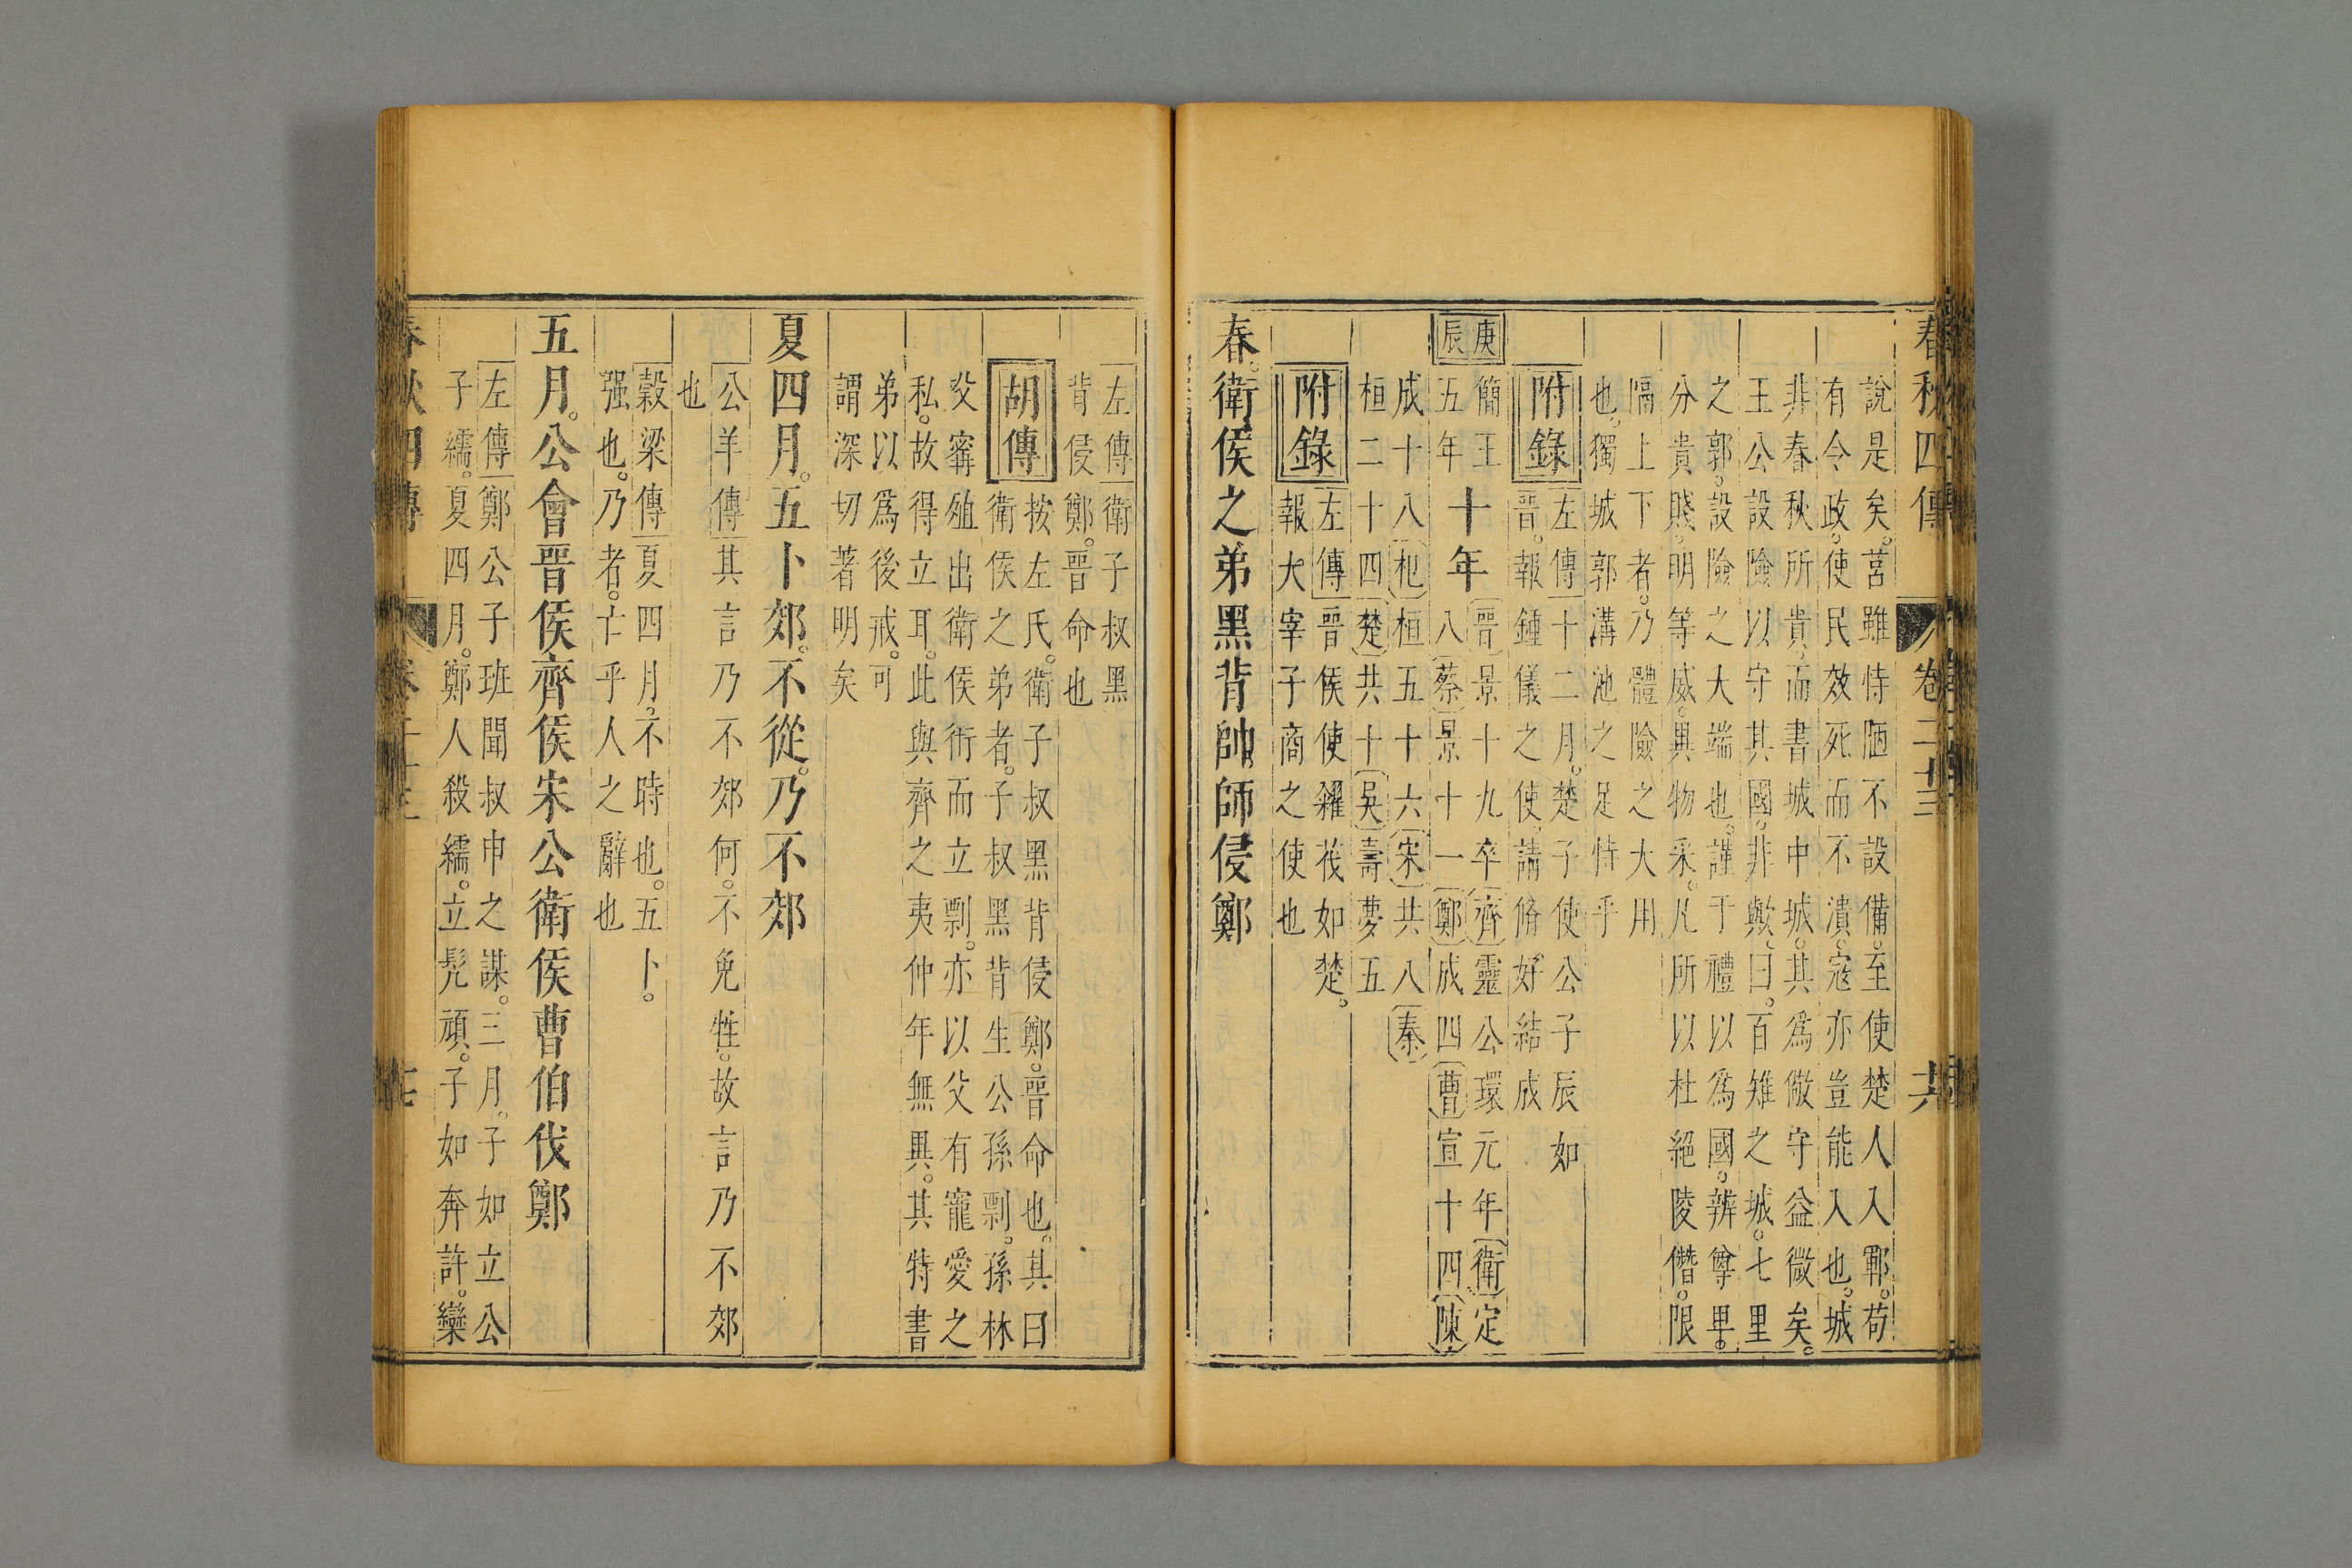 春秋四傳 卷二十三 共
說是矣。莒雖恃陋不設備。至使楚人入鄆。苟
有令政。使民效死而不潰。寇亦豈能入也。城
非春秋所貴。而書城中城。其為儆守益微矣。
王公設險以守其國。非歟。曰。百雉之城。七里
之郭。設險之大端也。謹于禮以為國。辨尊卑。
分貴賤。明等威。異物采。凡所以杜絕陵僭。限
隔上下者。乃體險之大用
也。獨城郭溝池之足恃乎
附錄
左傳十二月。楚子使公子辰如
晉。報鍾儀之使。請脩好結成
庚辰
簡王五年
十年
晉景十九卒齊靈公環元年衛定
八蔡景十一鄭成四曹宣十四陳
成十八杞桓五十六宋共八秦
桓二十四楚共十吳壽夢五
附錄
左傳晉侯使糴茷如楚。
報大宰子商之使也
春。衛侯之弟黑背帥師侵鄭
左傳衛子叔黑
背侵鄭。晉命也
胡傳
按左氏。衛子叔黑背侵鄭。晉命也。其曰
衛侯之弟者。子叔黑背生公孫剽。孫林
父甯殖出衛侯衎而立剽。亦以父有寵愛之
私。故得立耳。此與齊之夷仲年無異。其特書
弟以為後戒。可
謂深切著明矣
夏四月。五卜郊。不從。乃不郊
公羊傳其言乃不郊何。不免牲。故言乃不郊
也
穀梁傳夏四月。不時也。五卜。
强也。乃者。亡乎人之辭也
五月。公會晉侯齊侯宋公衛侯曹伯伐鄭
左傳鄭公子班聞叔申之謀。三月。子如立公
子繻。夏四月。鄭人殺繻。立髡頑。子如奔許。欒